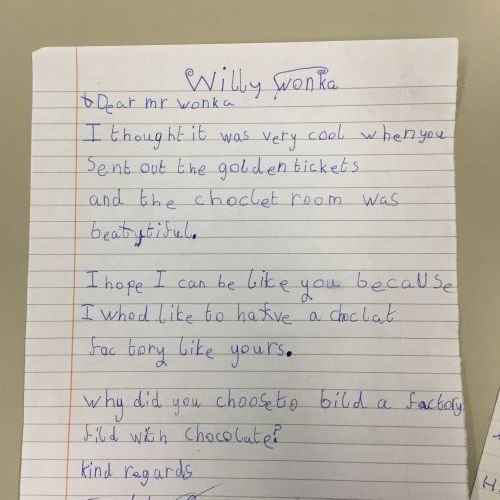 Willy Wonka
Dear mr wonka
I thought it was very cool when you
Sent out the golden tickets
and the choclet room was
beatytiful.
I hope I can be like you because
I whod like to hatve a choclat
factory like yours.
Why did you choose to bild a factory
fild with chocolate?
kind regards